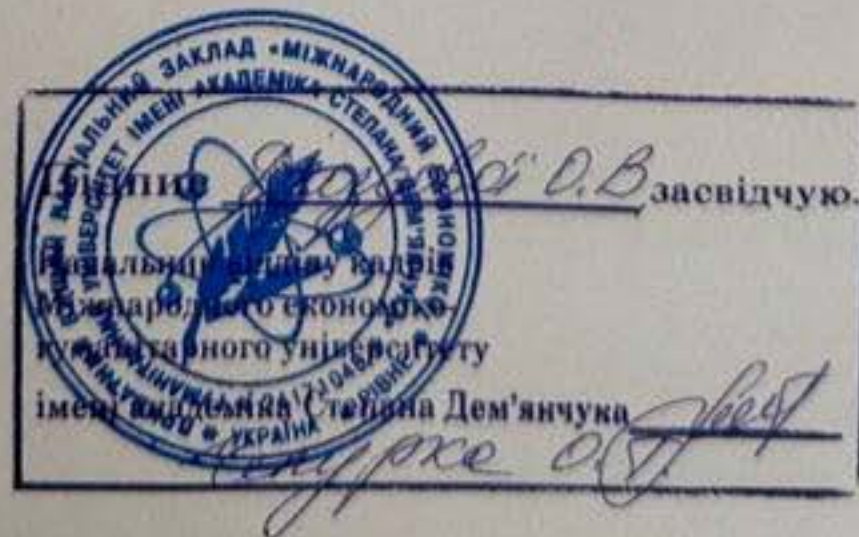 ВИЩИЙ НАВЧАЛЬНИЙ ЗАКЛАД «МІЖНАРОДНИЙ ЕКОНОМІКО-
УНІВЕРСИТЕТ ІМЕНІ АКАДЕМІКА СТЕПАНА
УКРАЇНА РІВНЕ
Підпис О.В засвідчую.
Начальник відділу кадрів
Міжнародного економіко-
гуманітарного університету
імені академіка Степана Дем'янчука